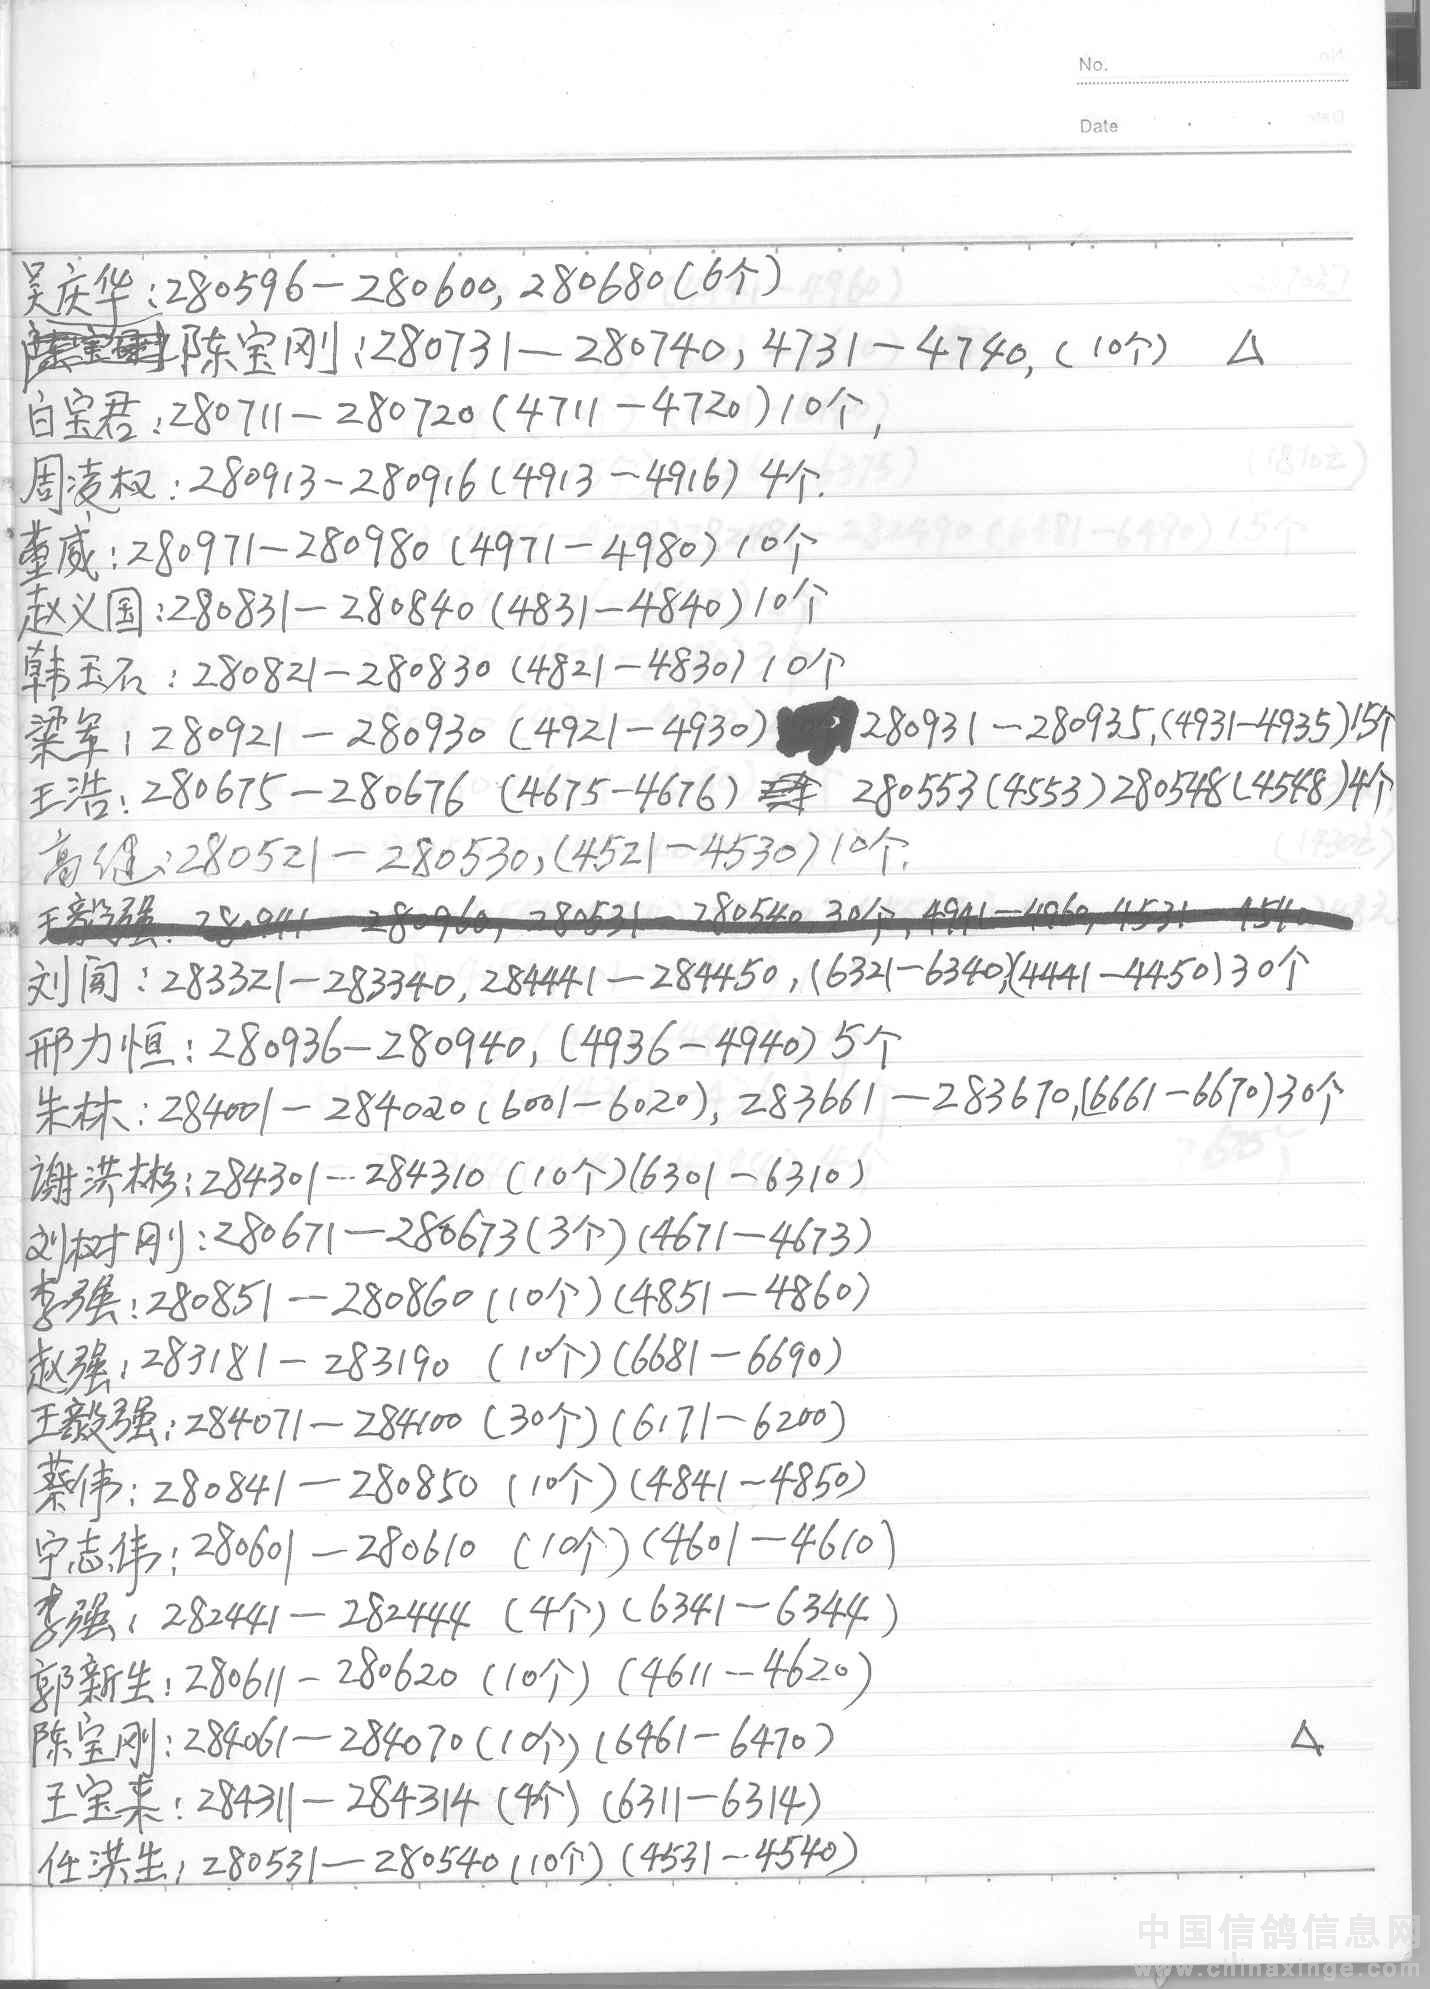 No.
Date
吴庆华:280596—280600,280680(6个)
陈宝刚:280731—280740,4731—4740,(10个) △
白宝君:280711—280720(4711—4720)10个,
周凌权:280913-280916(4913—4916)4个.
董威:280971—280980(4971—4980)10个
赵义国:280831—280840(4831—4840)10个
韩玉石:280821—280830(4821—4830)10个
梁军:280921—280930(4921—4930) 280931—280935,(4931—4935)15个
王浩:280675—280676(4675-4676) 280553(4553)280548(4548)4个
高健:280521—280530,(4521—4530)10个.
王毅强:280941 280960,280531—280540,30个,4941—4960,4531 4540
刘闯:283321—283340,284441—284450,(6321—6340),(4441—4450)30个
邢力恒:280936—280940,(4936—4940)5个
朱林:284001—284020(6001—6020),283661—283670,(6661—6670)30个
谢洪彬:284301—284310(10个)(6301—6310)
刘树刚:280671—280673(3个)(4671—4673)
李强:280851—280860(10个)(4851—4860)
赵强:283181—283190(10个)(6681—6690)
王毅强:284071—284100(30个)(6171—6200)
蔡伟:280841—280850(10个)(4841—4850)
宁志伟:280601—280610(10个)(4601—4610)
李强:282441—282444(4个)(6341—6344)
郭新生:280611—280620(10个)(4611—4620)
陈宝刚:284061—284070(10个)(6461—6470) △
王宝来:284311—284314(4个)(6311—6314)
任洪生:280531—280540(10个)(4531—4540)
中国信鸽信息网
www.chinaxinge.com